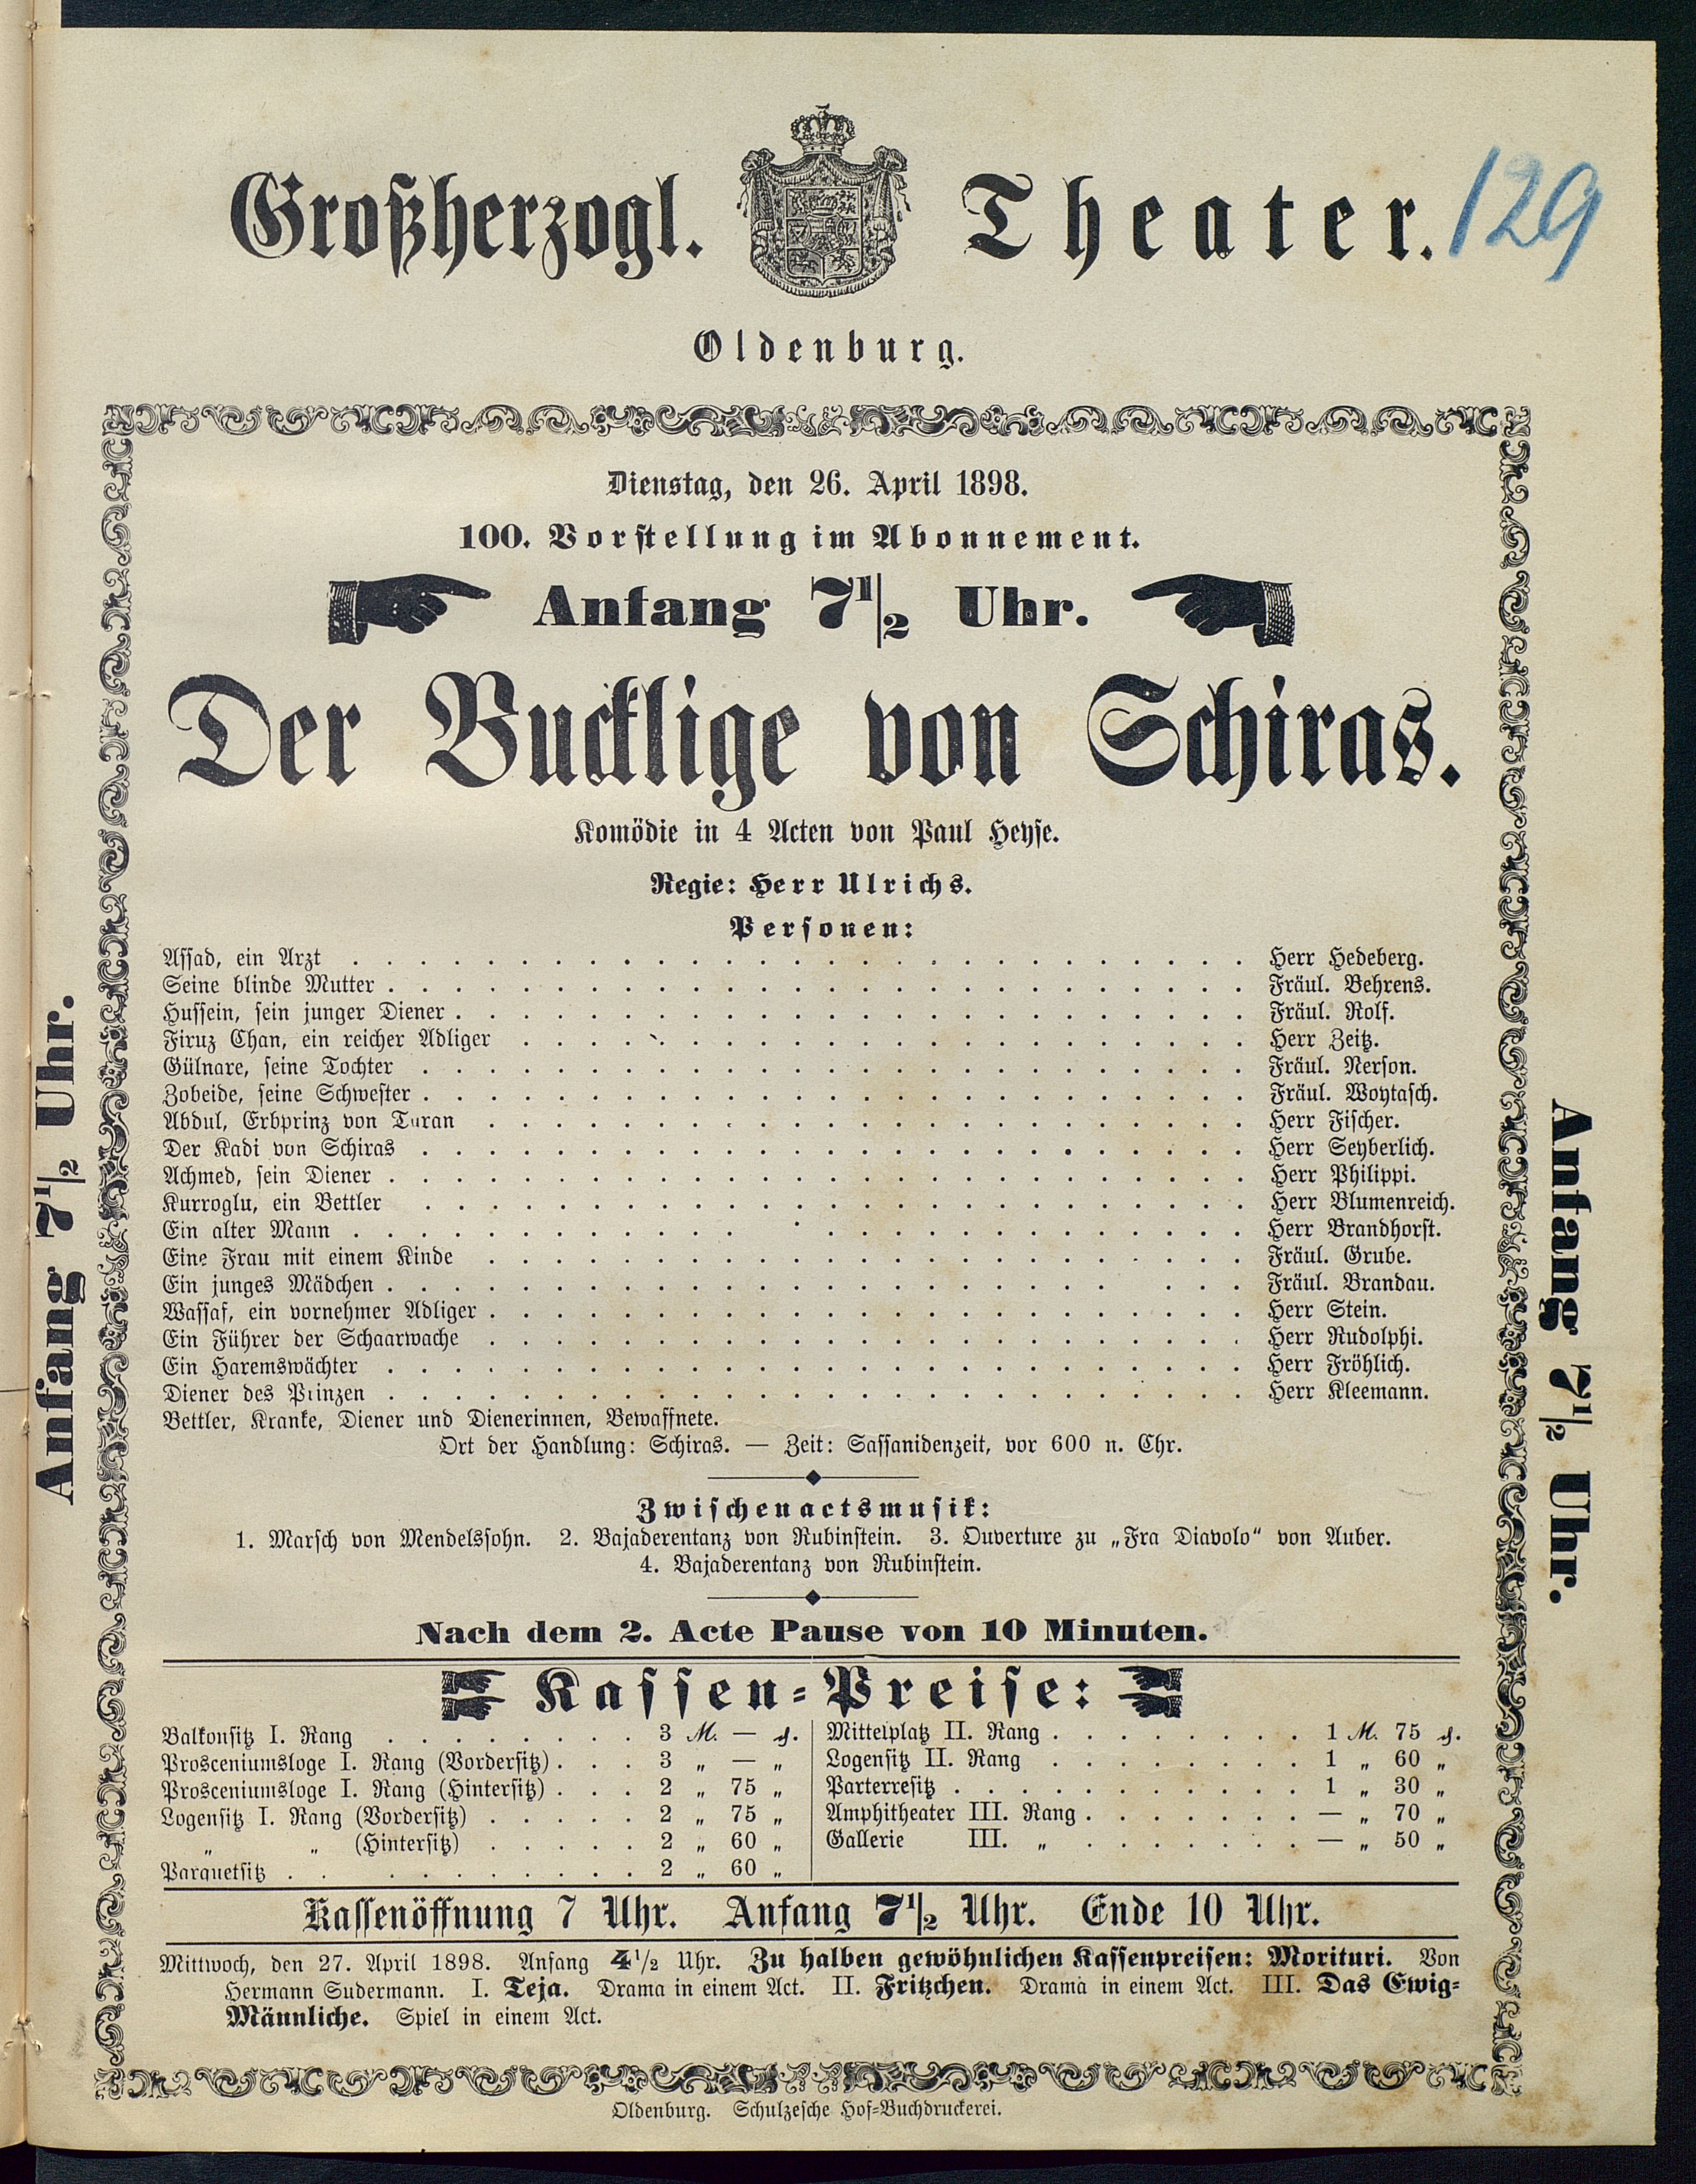 Großherzogl. Theater.
129
Oldenburg.
Dienstag, den 26. April 1898.
100. Vorstellung im Abonnement.
Anfang 7 1/2 Uhr.
Der Bucklige von Schiras.
Komödie in 4 Acten von Paul Heyse.
Regie: Herr Ulrichs.
Personen:
Assad, ein Arzt . . . Herr Hedeberg.
Seine blinde Mutter . . . Fräul. Behrens.
Hussein, sein junger Diener . . . Fräul. Rolf.
Firuz Chan, ein reicher Adliger . . . Herr Zeitz.
Gülnare, seine Tochter . . . Fräul. Nerson.
Zobeide, seine Schwester . . . Fräul. Woytasch.
Abdul, Erbprinz von Turan . . . Herr Fischer.
Der Kadi von Schiras . . . Herr Seyberlich.
Achmed, sein Diener . . . Herr Philippi.
Kurroglu, ein Bettler . . . Herr Blumenreich.
Ein alter Mann . . . Herr Brandhorst.
Eine Frau mit einem Kinde . . . Fräul. Grube.
Ein junges Mädchen . . . Fräul. Brandau.
Wassaf, ein vornehmer Adliger . . . Herr Stein.
Ein Führer der Schaarwache . . . Herr Rudolphi.
Ein Haremswächter . . . Herr Fröhlich.
Diener des Prinzen . . . Herr Kleemann.
Bettler, Kranke, Diener und Dienerinnen, Bewaffnete.
Ort der Handlung: Schiras. — Zeit: Sassanidenzeit, vor 600 n. Chr.
Zwischenactsmusik:
1. Marsch von Mendelssohn. 2. Bajaderentanz von Rubinstein. 3. Ouverture zu „Fra Diavolo“ von Auber.
4. Bajaderentanz von Rubinstein.
Nach dem 2. Acte Pause von 10 Minuten.
Kassen-Preise:
Balkonsitz I. Rang . . . 3 M. — ₰.
Prosceniumsloge I. Rang (Vordersitz) . . . 3 „ — „
Prosceniumsloge I. Rang (Hintersitz) . . . 2 „ 75 „
Logensitz I. Rang (Vordersitz) . . . 2 „ 75 „
„ „ (Hintersitz) . . . 2 „ 60 „
Parquetsitz . . . 2 „ 60 „
Mittelplatz II. Rang . . . 1 M. 75 ₰.
Logensitz II. Rang . . . 1 „ 60 „
Parterresitz . . . 1 „ 30 „
Amphitheater III. Rang . . . — „ 70 „
Gallerie III. „ . . . — „ 50 „
Kassenöffnung 7 Uhr. Anfang 7 1/2 Uhr. Ende 10 Uhr.
Mittwoch, den 27. April 1898. Anfang 4 1/2 Uhr. Zu halben gewöhnlichen Kassenpreisen: Morituri. Von
Hermann Sudermann. I. Teja. Drama in einem Act. II. Fritzchen. Drama in einem Act. III. Das Ewig-
Männliche. Spiel in einem Act.
Oldenburg. Schulzesche Hof-Buchdruckerei.
Anfang 7 1/2 Uhr.
Anfang 7 1/2 Uhr.